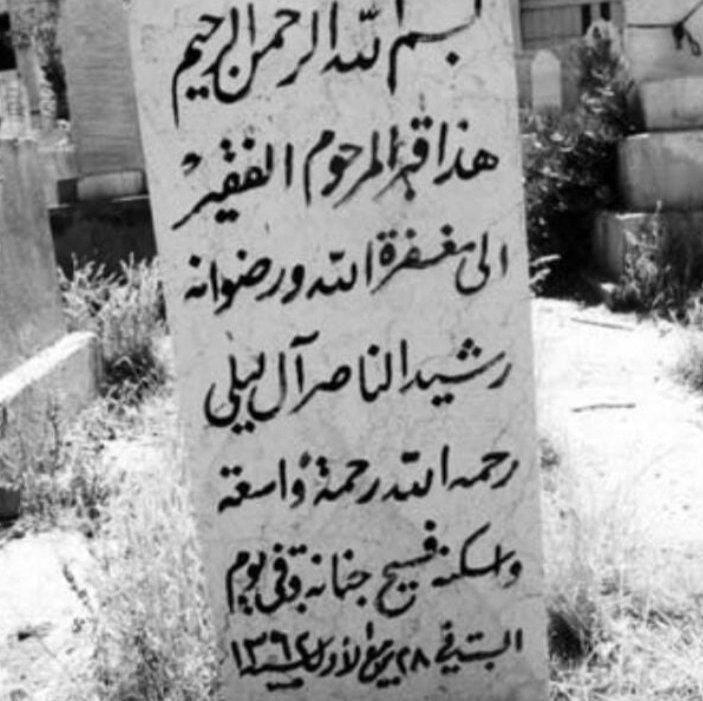 بسم الله الرحمن الرحيم
هذا قبر المرحوم الفقير
الى مغفرة الله ورضوانه
رشيد الناصر آل ليلى
رحمه الله رحمة واسعة
واسكنه فسيح جنانه توفي يوم
السبت في ٢٨ ربيع الأول سنة ١٣٦٢